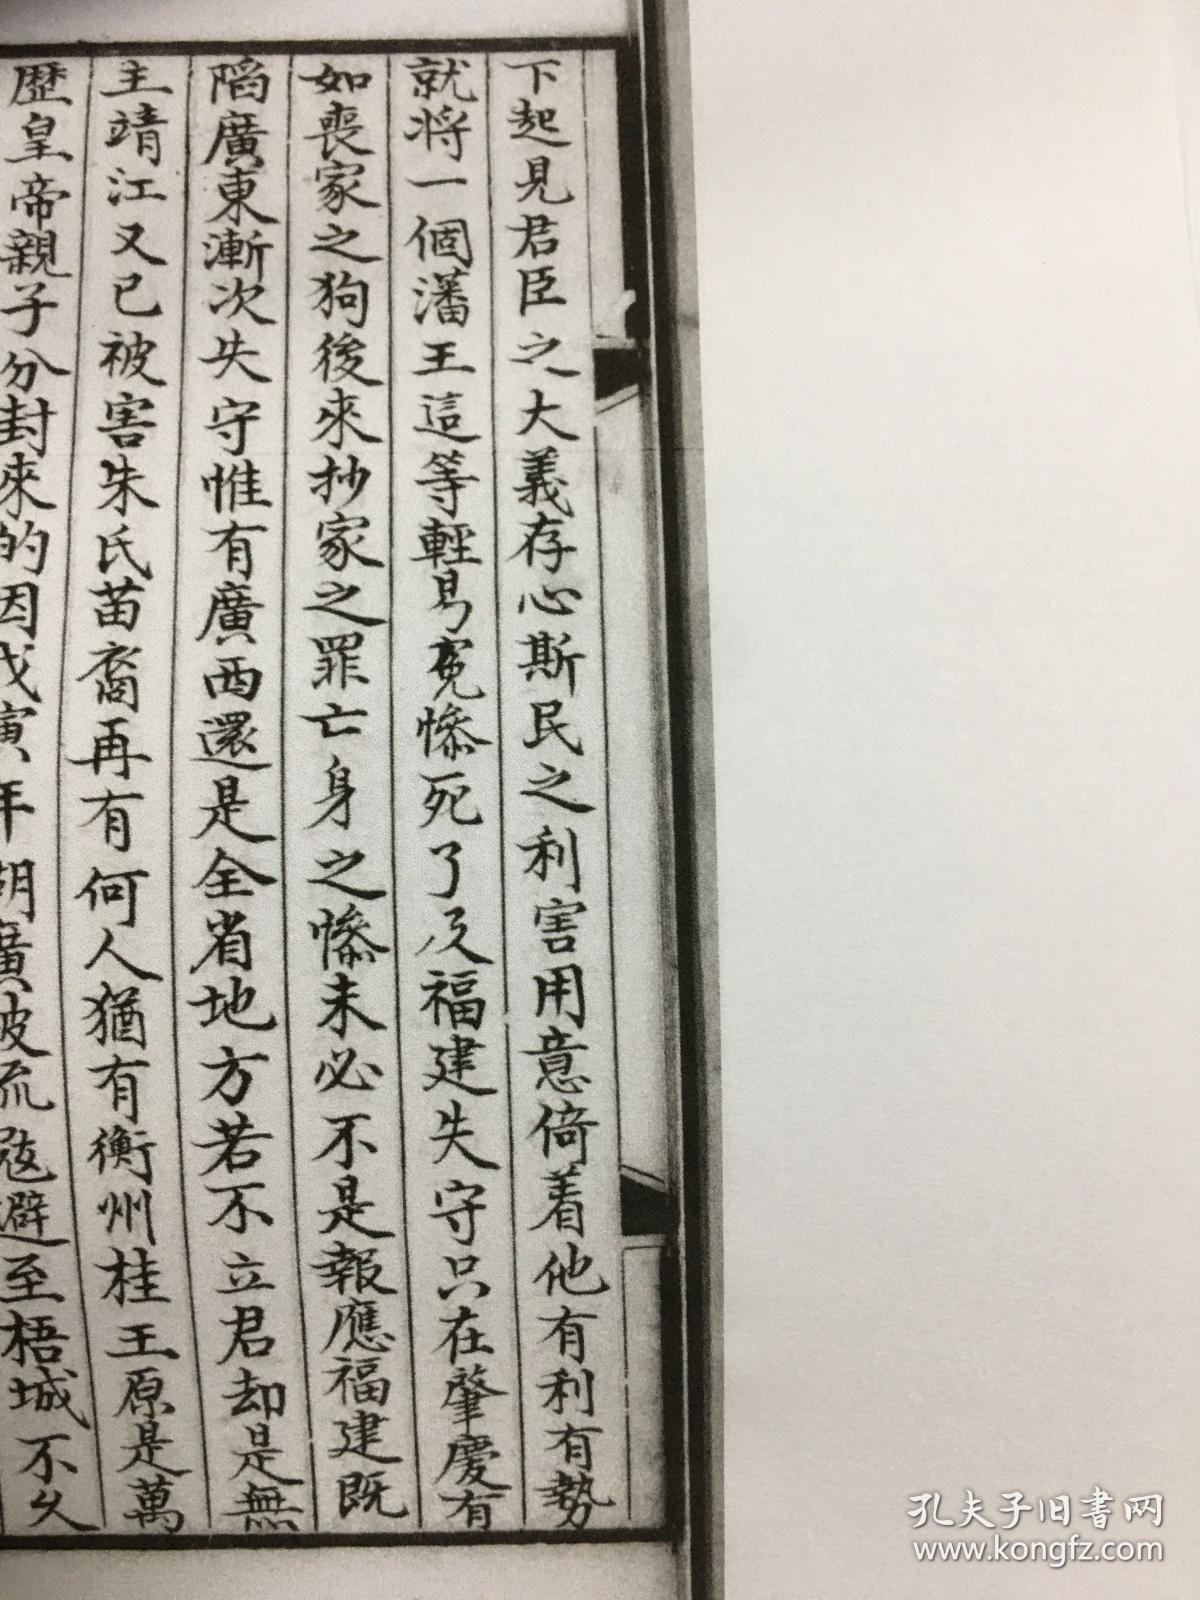 下起見君臣之大義存心斯民之利害用意倚着他有利有勢
就将一個藩王這等輕易寃慘死了及福建失守只在肇慶有
如喪家之狗後來抄家之罪亡身之慘未必不是報應福建既
陷廣東漸次失守惟有廣西還是全省地方若不立君却是無
主靖江又已被害朱氏苗裔再有何人猶有衡州桂王原是萬
歷皇帝親子分封來的因戊寅年胡廣被流寇避至梧城不久
孔夫子旧书网
www.kongfz.com